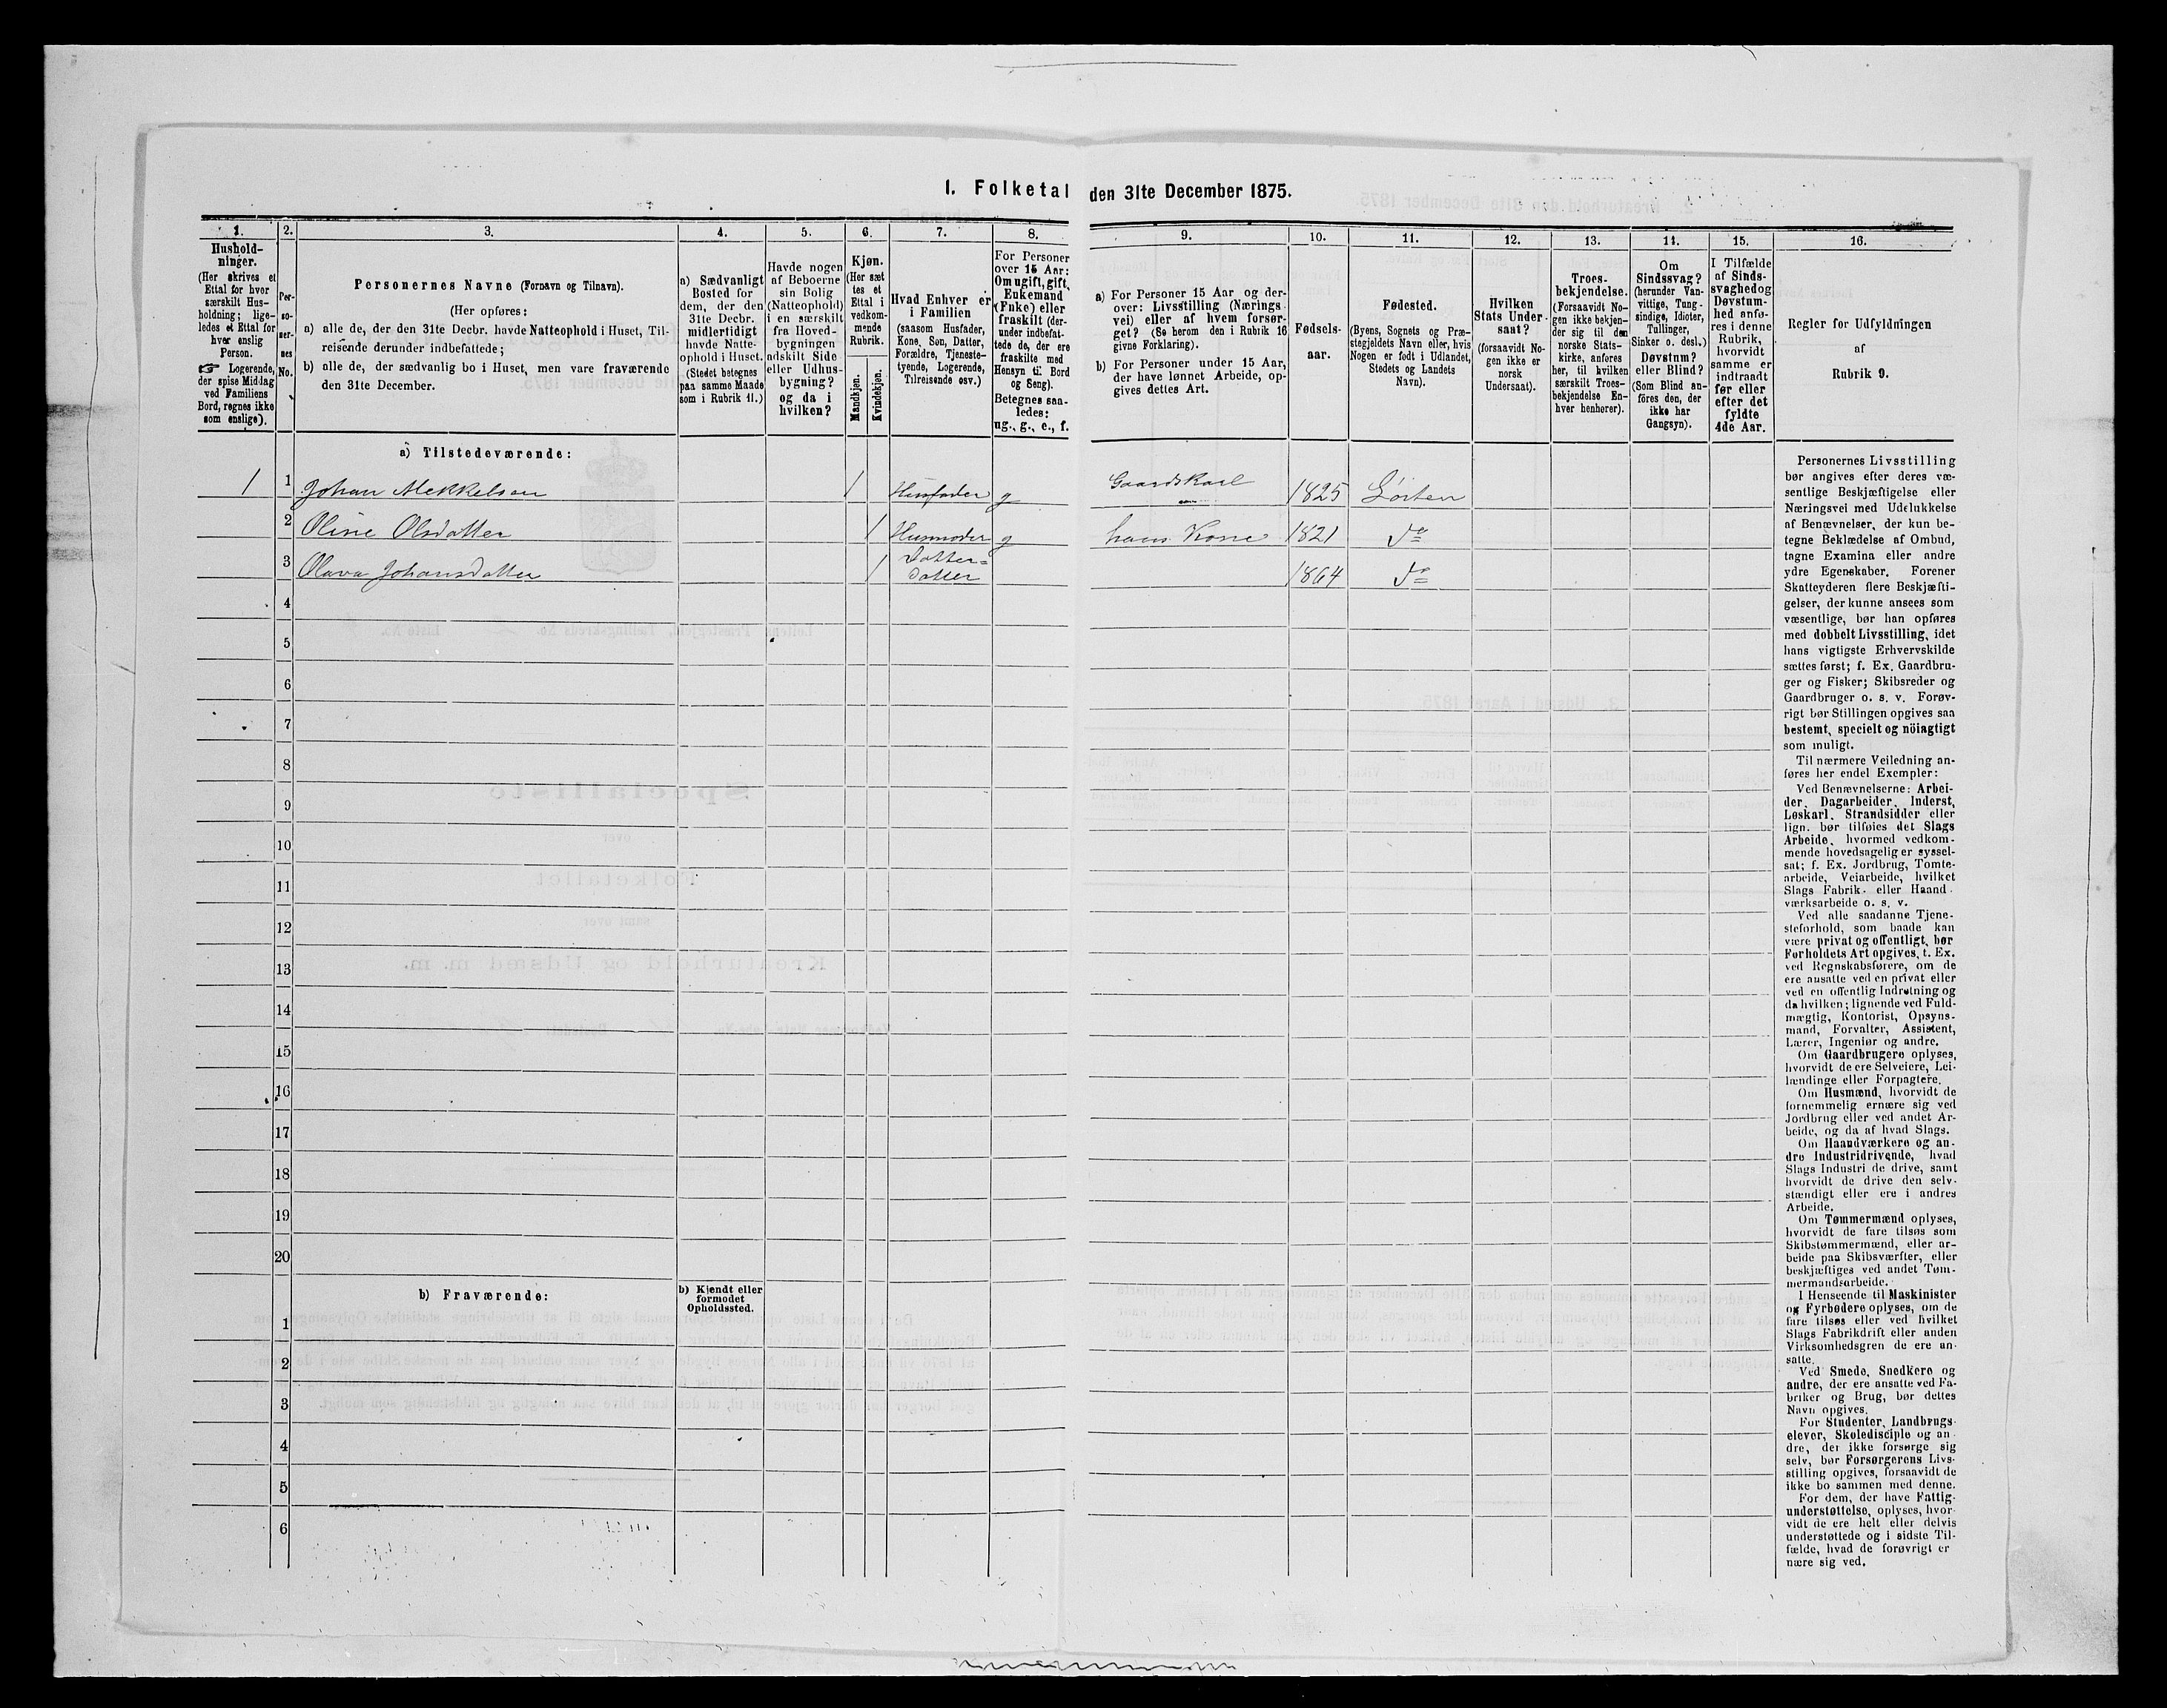 1. Folketal den 31te December 1875.
1.
Hushold-
ninger.
(Her skrives et
Ettal for hver
særskilt Hus-
holdning; lige-
ledes et Ettal for
hver enslig
Person.
☞ Logerende,
der spise Middag
ved Familiens
Bord, regnes ikke
som enslige).
2.
Per-
so-
ner-
nes
No.
3.
Personernes Navne (Fornavn og Tilnavn).
(Her opføres:
a) alle de, der den 31te Decbr. havde Natteophold i Huset, Til-
reisende derunder indbefattede;
b) alle de, der sædvanlig bo i Huset, men vare fraværende
den 31te December.
4.
a) Sædvanligt
Bosted for
dem, der den
31te Decbr.
midlertidigt
havde Natte-
ophold i Huset.
(Stedet betegnes
paa samme Maade
som i Rubrik 11.)
5.
Havde nogen
af Beboerne
sin Bolig
(Natteophold)
i en særskilt
fra Hoved-
bygningen
adskilt Side
eller Udhus-
bygning?
og da i
hvilken?
6.
Kjøn.
(Her sæt
tes et
Ettal i
vedkom-
mende
Rubrik.
Mandkjøn.
Kvindekjøn.
7.
Hvad Enhver er
i Familien
(saasom Husfader,
Kone, Søn, Datter,
Forældre, Tjeneste-
tyende, Logerende,
Tilreisende osv.)
8.
For Personer
over 15 Aar:
Om ugift, gift,
Enkemand
(Enke) eller
fraskilt (der-
under indbefat-
tede de, der ere
fraskilte med
Hensyn til Bord
og Seng).
Betegnes saa-
ledes:
ug., g., e., f.
9.
a) For Personer 15 Aar og der-
over: Livsstilling (Nærings-
vei) eller af hvem forsør-
get? (Se herom den i Rubrik 16
givne Forklaring).
b) For Personer under 15 Aar,
der have lønnet Arbeide, op-
gives dettes Art.
10.
Fødsels-
aar.
11.
Fødested.
(Byens, Sognets og Præ-
stegjeldets Navn eller, hvis
Nogen er født i Udlandet,
Stedets og Landets
Navn).
12.
Hvilken
Stats Under-
saat?
(forsaavidt No-
gen ikke er
norsk
Undersaat).
13.
Troes-
bekjendelse.
(Forsaavidt No-
gen ikke bekjen-
der sig til den
norske Stats-
kirke, anføres
her, til hvilken
særskilt Troes-
bekjendelse En-
hver henhører).
14.
Om
Sindssvag?
(herunder Van-
vittige, Tung-
sindige, Idioter,
Tullinger,
Sinker o. desl.)
Døvstum?
eller Blind?
(Som Blind an-
føres den, der
ikke har
Gangsyn).
15.
I Tilfælde
af Sinds-
svaghed og
Døvstum-
hed anfø-
res i denne
Rubrik,
hvorvidt
samme er
indtraadt
før eller
efter det
fyldte
4de Aar.
16.
Regler for Udfyldningen
af
Rubrik 9.
a) Tilstedeværende:
1 1 Johan Mekkelsen 1 Husfader g Gaardskarl 1825 Løiten
2 Oline Olsdatter 1 Husmoder g hans Kone 1821 do
3 Olava Johansdatter 1 Datter=
datter 1864 do
4
5
6
7
8
9
10
11
12
13
14
15
16
17
18
19
20
b) Fraværende:
b) Kjendt eller
formodet
Opholdssted.
1
2
3
4
5
6
Personernes Livsstilling
bør angives efter deres væ-
sentlige Beskjæftigelse eller
Næringsvei med Udelukkelse
af Benævnelser, der kun be-
tegne Beklædelse af Ombud,
tagne Examina eller andre
ydre Egenskaber. Forener
Skatteyderen flere Beskjæfti-
gelser, der kunne ansees som
væsentlige, bør han opføres
med dobbelt Livsstilling, idet
hans vigtigste Erhvervskilde
sættes først; f. Ex. Gaardbru-
ger og Fisker; Skibsreder og
Gaardbruger o. s. v. Forøv-
rigt bør Stillingen opgives saa
bestemt, specielt og nöiagtigt
som muligt.
Til nærmere Veiledning an-
føres her endel Exempler:
Ved Benævnelserne: Arbei-
der, Dagarbeider, Inderst,
Løskarl, Strandsidder eller
lign. bør tilføies det Slags
Arbeide, hvormed vedkom-
mende hovedsagelig er syssel-
sat; f. Ex. Jordbrug, Tomte-
arbeide, Veiarbeide, hvilket
Slags Fabrik- eller Haand-
værksarbeide o. s. v.
Ved alle saadanne Tjene-
steforhold, som baade kan
være privat og offentligt, bør
Forholdets Art opgives, t. Ex.
ved Regnskabsførere, om de
ere ansatte ved en privat eller
ved en offentlig Indretning og
da hvilken; lignende ved Fuld-
mægtig, Kontorist, Opsyns-
mand, Forvalter, Assistent,
Lærer, Ingeniør og andre.
Om Gaardbrugere oplyses,
hvorvidt de ere Selveiere, Lei-
lændinge eller Forpagtere.
Om Husmænd, hvorvidt de
fornemmelig ernære sig ved
Jordbrug eller ved andet Ar-
beide, og da af hvad Slags.
Om Haandværkere og an-
dre Industridrivende, hvad
Slags Industri de drive, samt
hvorvidt de drive den selv-
stændigt eller ere i andres
Arbeide.
Om Tømmermænd oplyses,
hvorvidt de fare tilsøs som
Skibstømmermænd, eller ar-
beide paa Skibsværfter, eller
beskjæftiges ved andet Tøm-
mermandsarbeide.
I Henseende til Maskinister
og Fyrbødere oplyses, om de
fare tilsøs eller ved hvilket
Slags Fabrikdrift eller anden
Virksomhedsgren de ere an-
satte.
Ved Smede, Snedkere og
andre, der ere ansatte ved Fa-
briker og Brug, bør dettes
Navn opgives.
For Studenter, Landbrugs-
elever, Skoledisciple og an-
dre, der ikke forsørge sig
selv, bør Forsørgerens Livs-
stilling opgives, forsaavidt de
ikke bo sammen med denne.
For dem, der have Fattig-
understøttelse, oplyses, hvor-
vidt de ere helt eller delvis
understøttede og i sidste Til-
fælde, hvad de forøvrigt er-
nære sig ved.